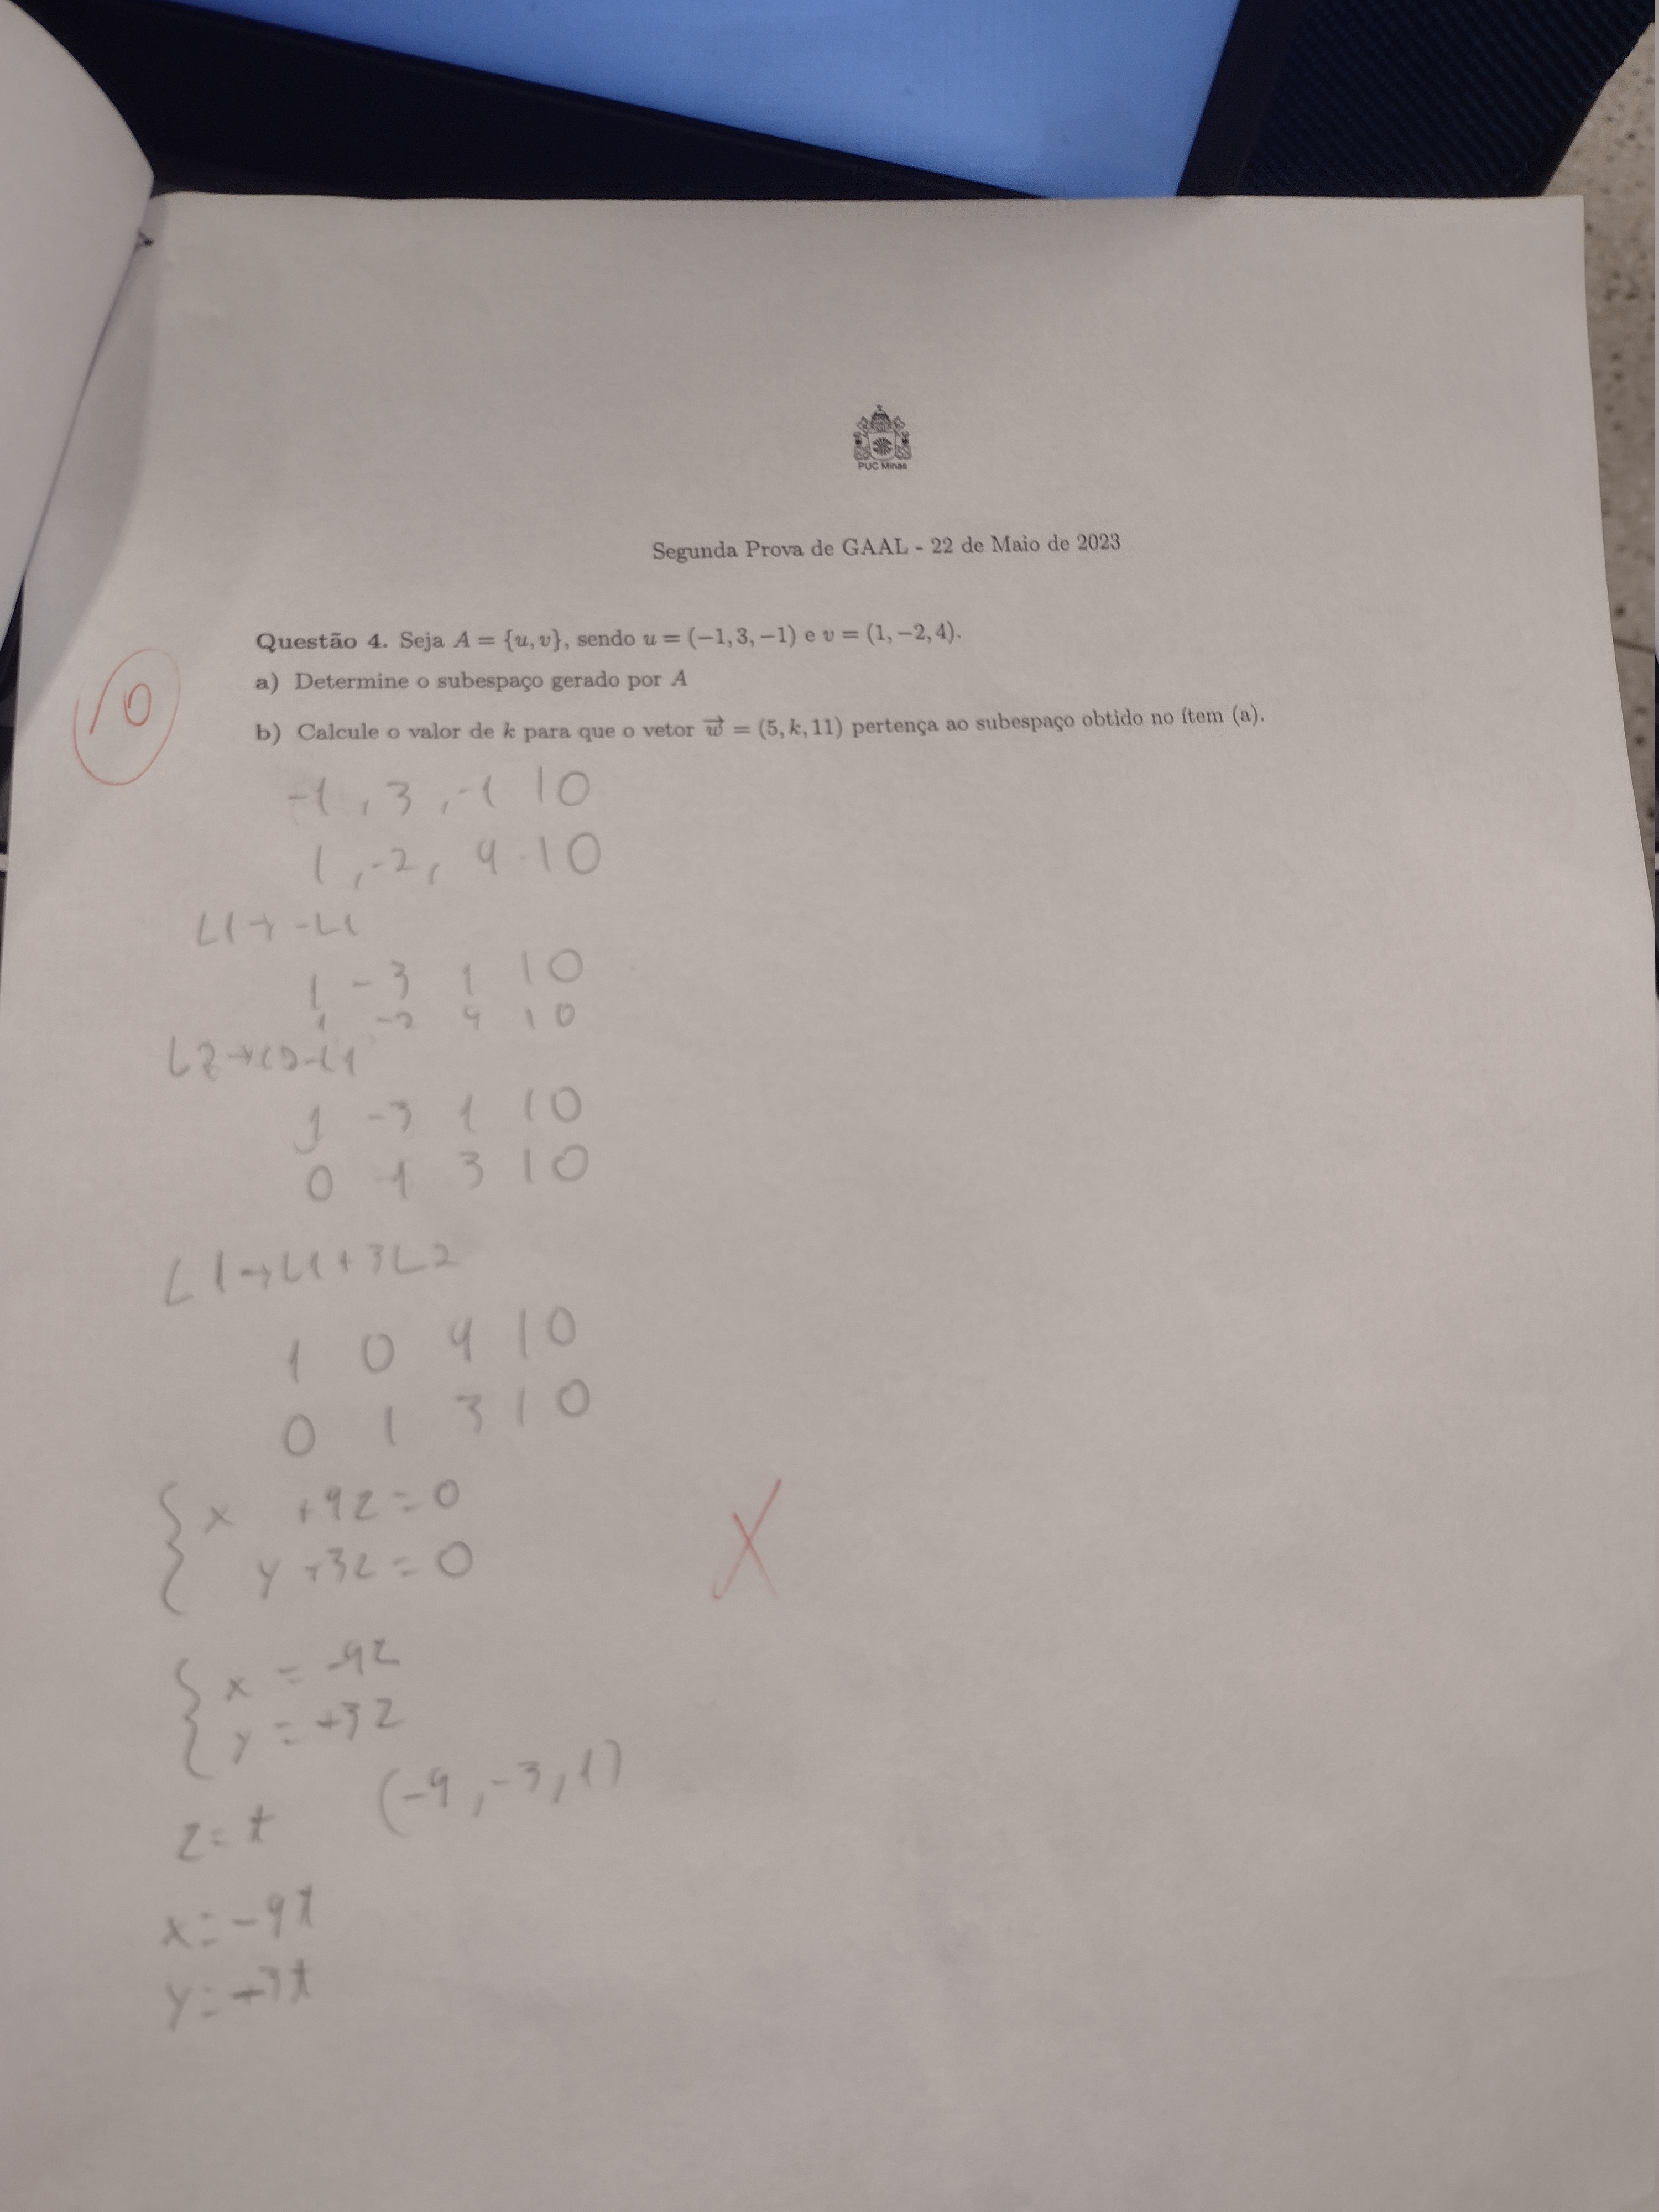 PUC Minas
Segunda Prova de GAAL - 22 de Maio de 2023
Questão 4. Seja A = {u, v}, sendo u = (−1, 3, −1) e v = (1, −2, 4).
10
a) Determine o subespaço gerado por A
b) Calcule o valor de k para que o vetor w⃗ = (5, k, 11) pertença ao subespaço obtido no ítem (a).
-1 , 3 , -1 | 0
1 , -2 , 4 | 0
L1 → -L1
1 -3 1 | 0
1 -2 4 | 0
L2 → L2-L1
1 -3 1 | 0
0 1 3 | 0
L1 → L1 + 3L2
1 0 9 | 0
0 1 3 | 0
{ x +9z = 0
y +3z = 0
X
{ x = -9z
y = +3z
(-9, -3, 1)
z = t
x = -9t
y = -3t